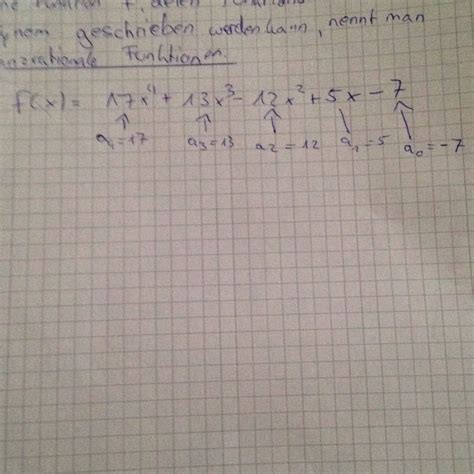 f, deren
geschrieben werden kann, nennt man
ganzrationale Funktionen.
f(x) = 17x⁴ + 13x³ - 12x² + 5x - 7
a₄=17 a₃=13 a₂=12 a₁=5 a₀=-7